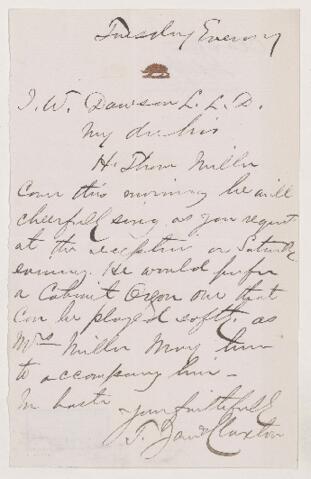 Tuesday Evening
J. W. Dawson L. L. D.
My dear Sir
H. Thom Miller
Came this morning he will
cheerfully sing as you request
at the reception on Saturday
evening. He would prefer
a Cabinet Organ one that
can be played softly. as
Mrs Miller
to accompany him -
In haste
yours faithfully
T. James Claxton